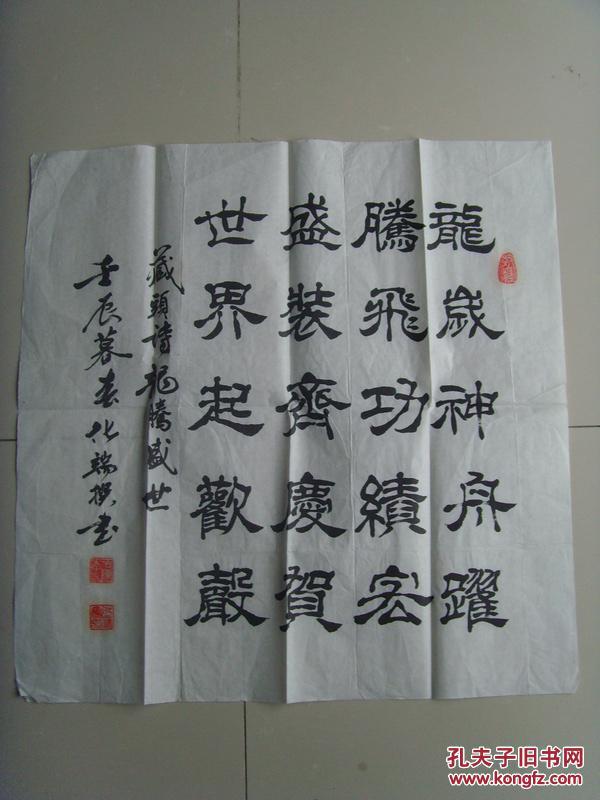 龍歲神舟躍
騰飛功績宏
盛裝齊慶賀
世界起歡聲
藏頭詩龍騰盛世
壬辰暮春化端撰书
孔夫子旧书网
www.kongfz.com